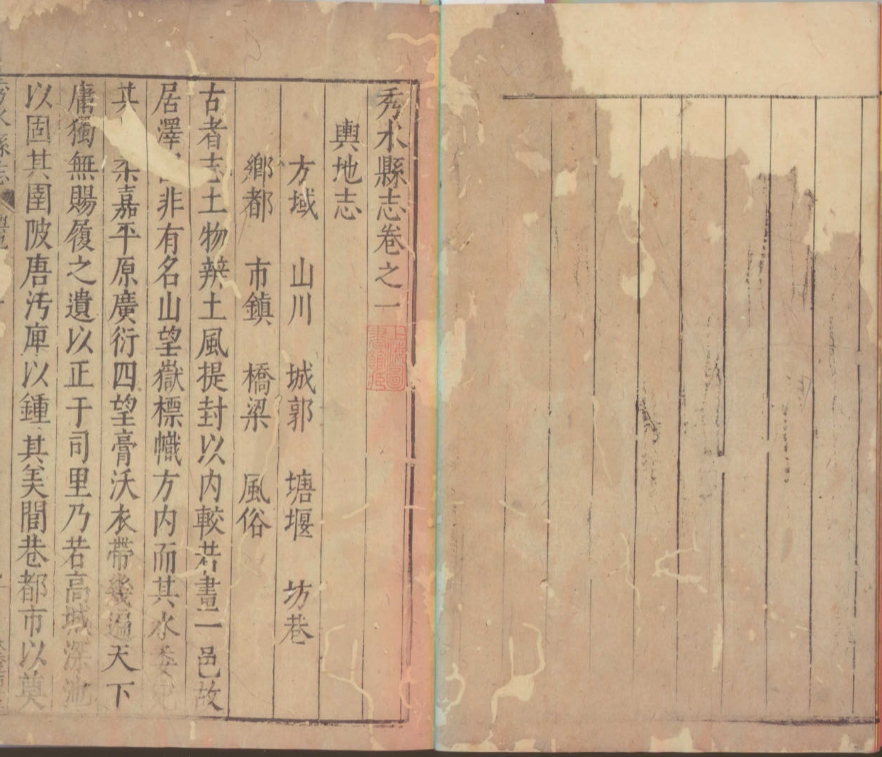 秀水縣志卷之一
輿地志
方域 山川 城郭 塘堰 坊巷
鄉都 市鎮 橋梁 風俗
古者志土物辨土風提封以内較若畫一邑故
居澤非有名山望嶽標幟方内而其水委
其柔嘉平原廣衍四望膏沃衣帶幾遍天下
庸獨無賜履之遺以正于司里乃若高城深池
以固其圉陂唐汚庳以鍾其美閭巷都市以奠
秀水縣志